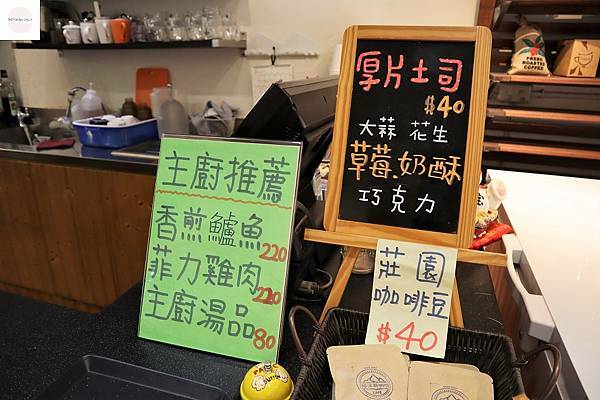 主廚推薦
香煎鱸魚 220
菲力雞肉 220
主廚湯品 80
厚片土司
$40
大蒜 花生
草莓.奶酥
巧克力
莊園
咖啡豆
$40